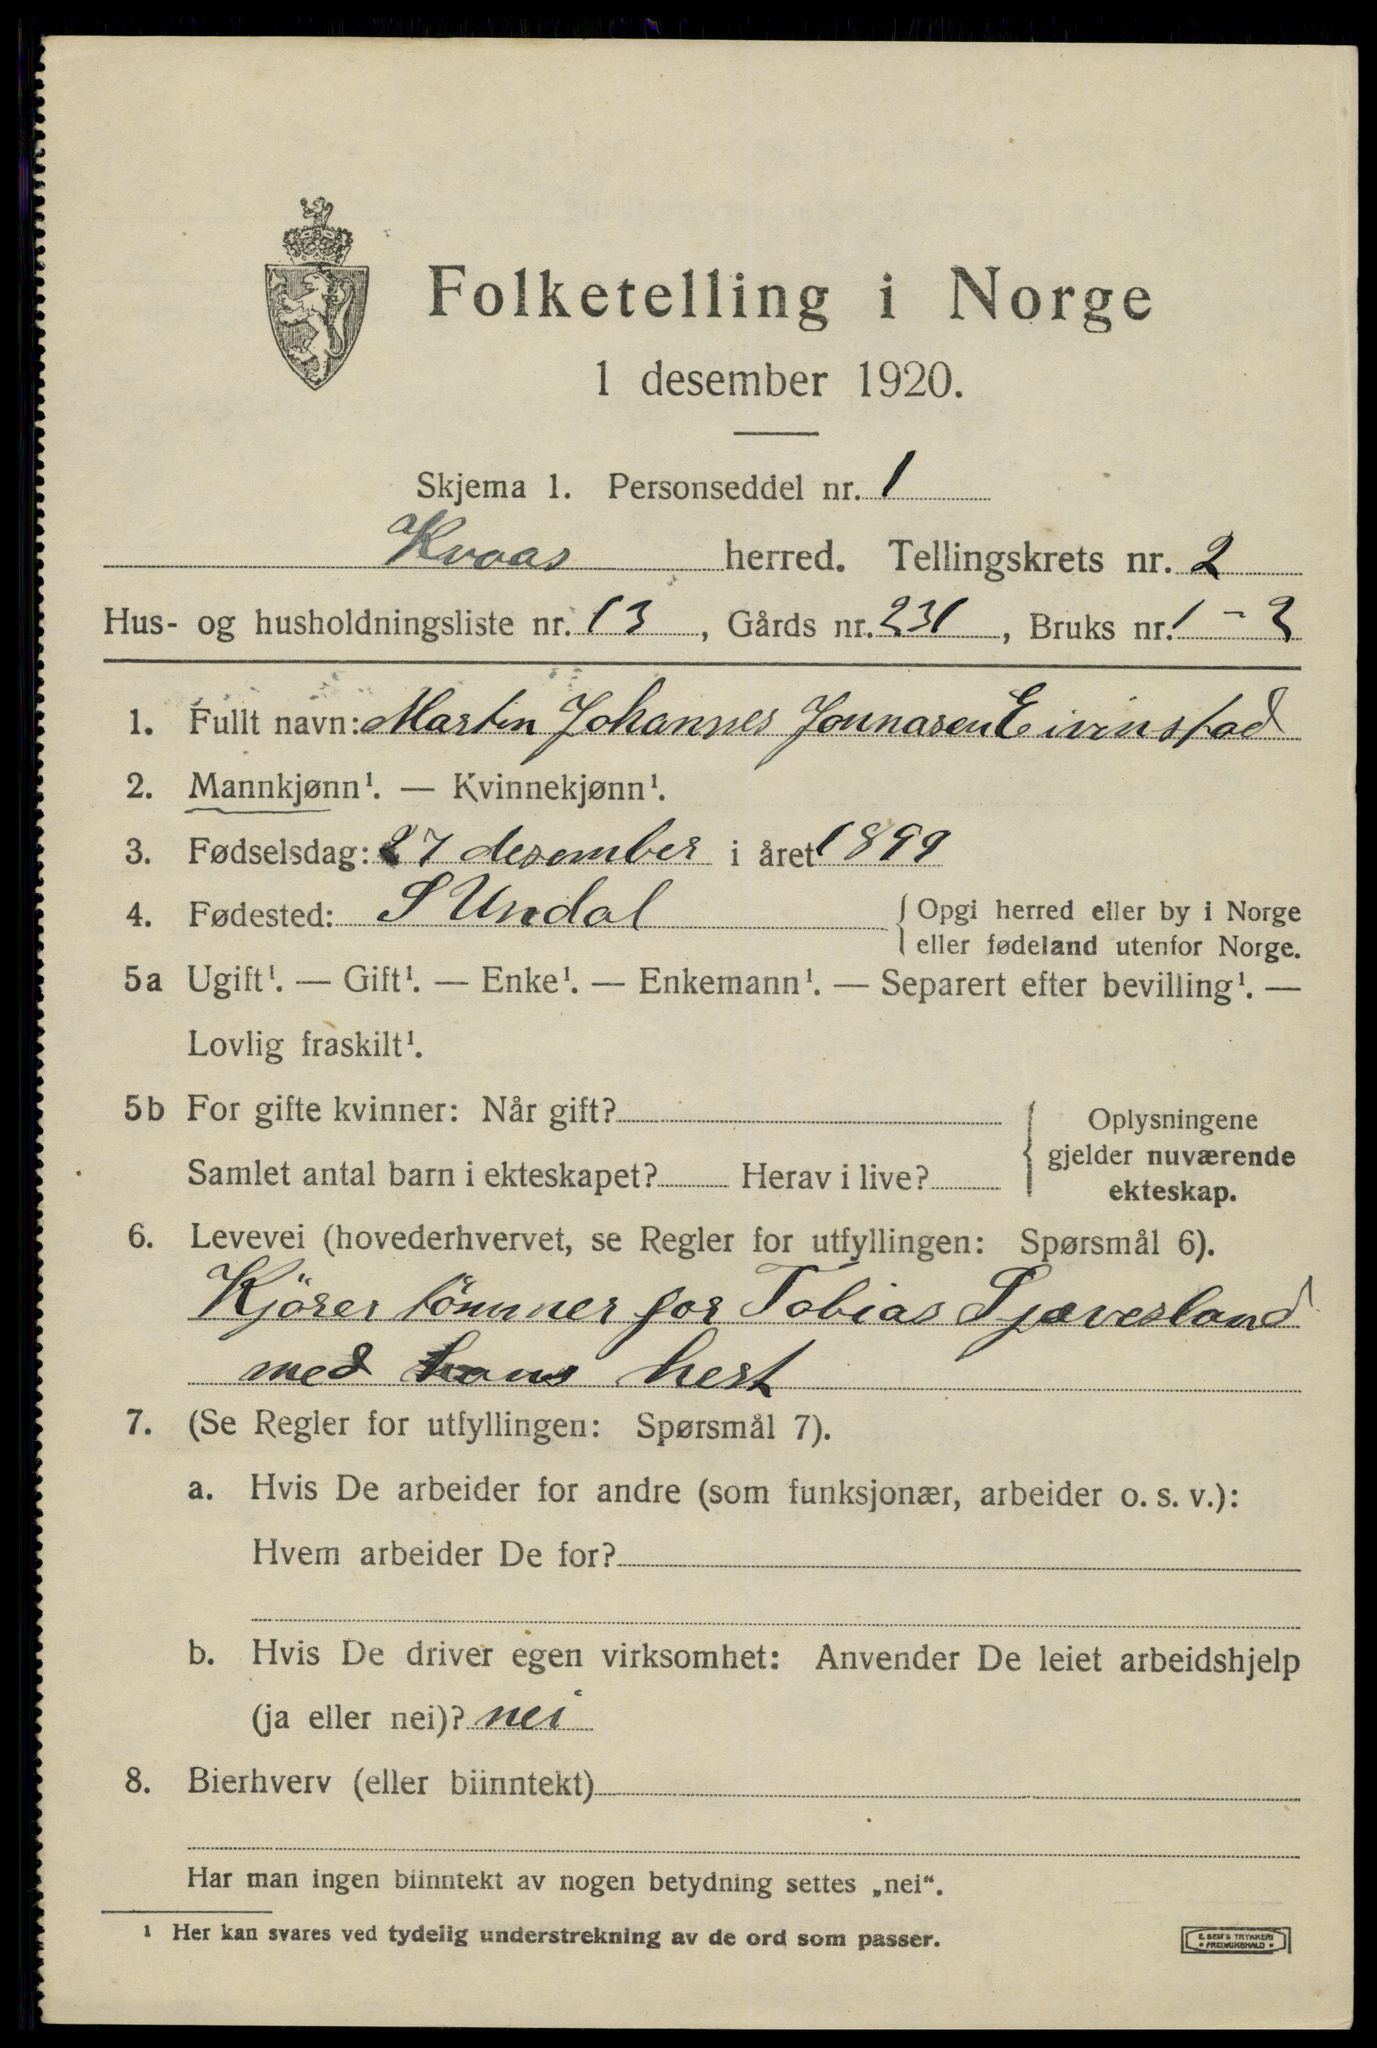 Folketelling i Norge
1 desember 1920.
Skjema 1. Personseddel nr. 1
Kvaas herred. Tellingskrets nr. 2
Hus- og husholdningsliste nr. 13, Gårds nr. 231, Bruks nr. 1-2
1. Fullt navn: Martin Johannes Jonnasen Eivinstad
2. Mannkjønn¹. — Kvinnekjønn¹.
3. Fødselsdag: 27 desember i året 1899
4. Fødested: S Undal { Opgi herred eller by i Norge
eller fødeland utenfor Norge.
5a Ugift¹. — Gift¹. — Enke¹. — Enkemann¹. — Separert efter bevilling¹. —
Lovlig fraskilt¹.
5b For gifte kvinner: Når gift? { Oplysningene
gjelder nuværende
Samlet antal barn i ekteskapet? Herav i live? ekteskap.
6. Levevei (hovederhvervet, se Regler for utfyllingen: Spørsmål 6).
Kjörer tömmer for Tobias Tjævesland
med hans hest
7. (Se Regler for utfyllingen: Spørsmål 7).
a. Hvis De arbeider for andre (som funksjonær, arbeider o. s. v.):
Hvem arbeider De for?
b. Hvis De driver egen virksomhet: Anvender De leiet arbeidshjelp
(ja eller nei)? nei
8. Bierhverv (eller biinntekt)
Har man ingen biinntekt av nogen betydning settes „nei“.
¹ Her kan svares ved tydelig understrekning av de ord som passer.
E. SEM'S TRYKKERI
• FREDRIKSHALD •